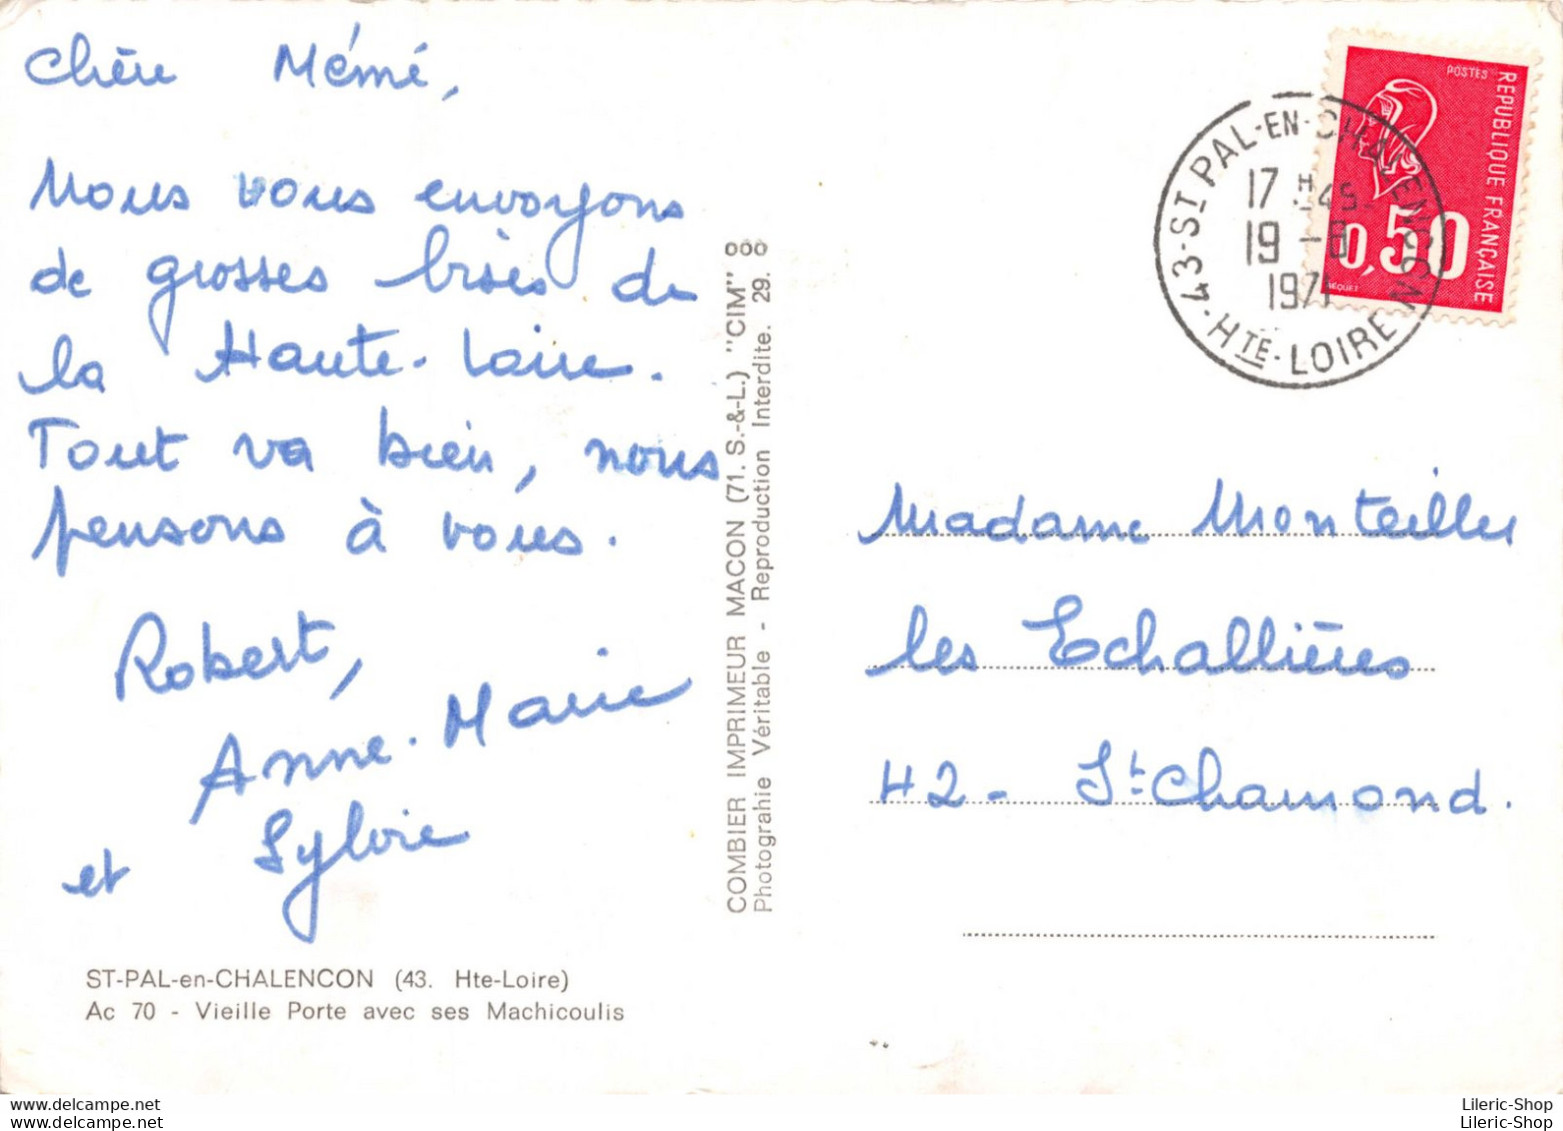 Chère Mémé,
Nous vous envoyons
de grosses bises de
la Haute-Loire.
Tout va bien, nous
pensons à vous.
Robert,
Anne-Marie
et Sylvie
ST-PAL-en-CHALENCON (43. Hte-Loire)
Ac 70 - Vieille Porte avec ses Machicoulis
COMBIER IMPRIMEUR MACON (71. S.-&-L.) "CIM"
Photograhie Véritable - Reproduction Interdite. 29.
43-ST PAL-EN-CHALENCON
17 H 45
19 -8
1971
HTE-LOIRE
POSTES
REPUBLIQUE FRANÇAISE
0,50
BEQUET
Madame Monteiller
les Echallières
42- St-Chamond.
www.delcampe.net
www.delcampe.net
Lileric-Shop
Lileric-Shop